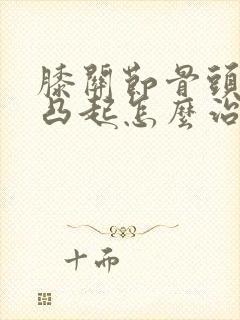 膝關節骨頭
凸起怎麼治
十而